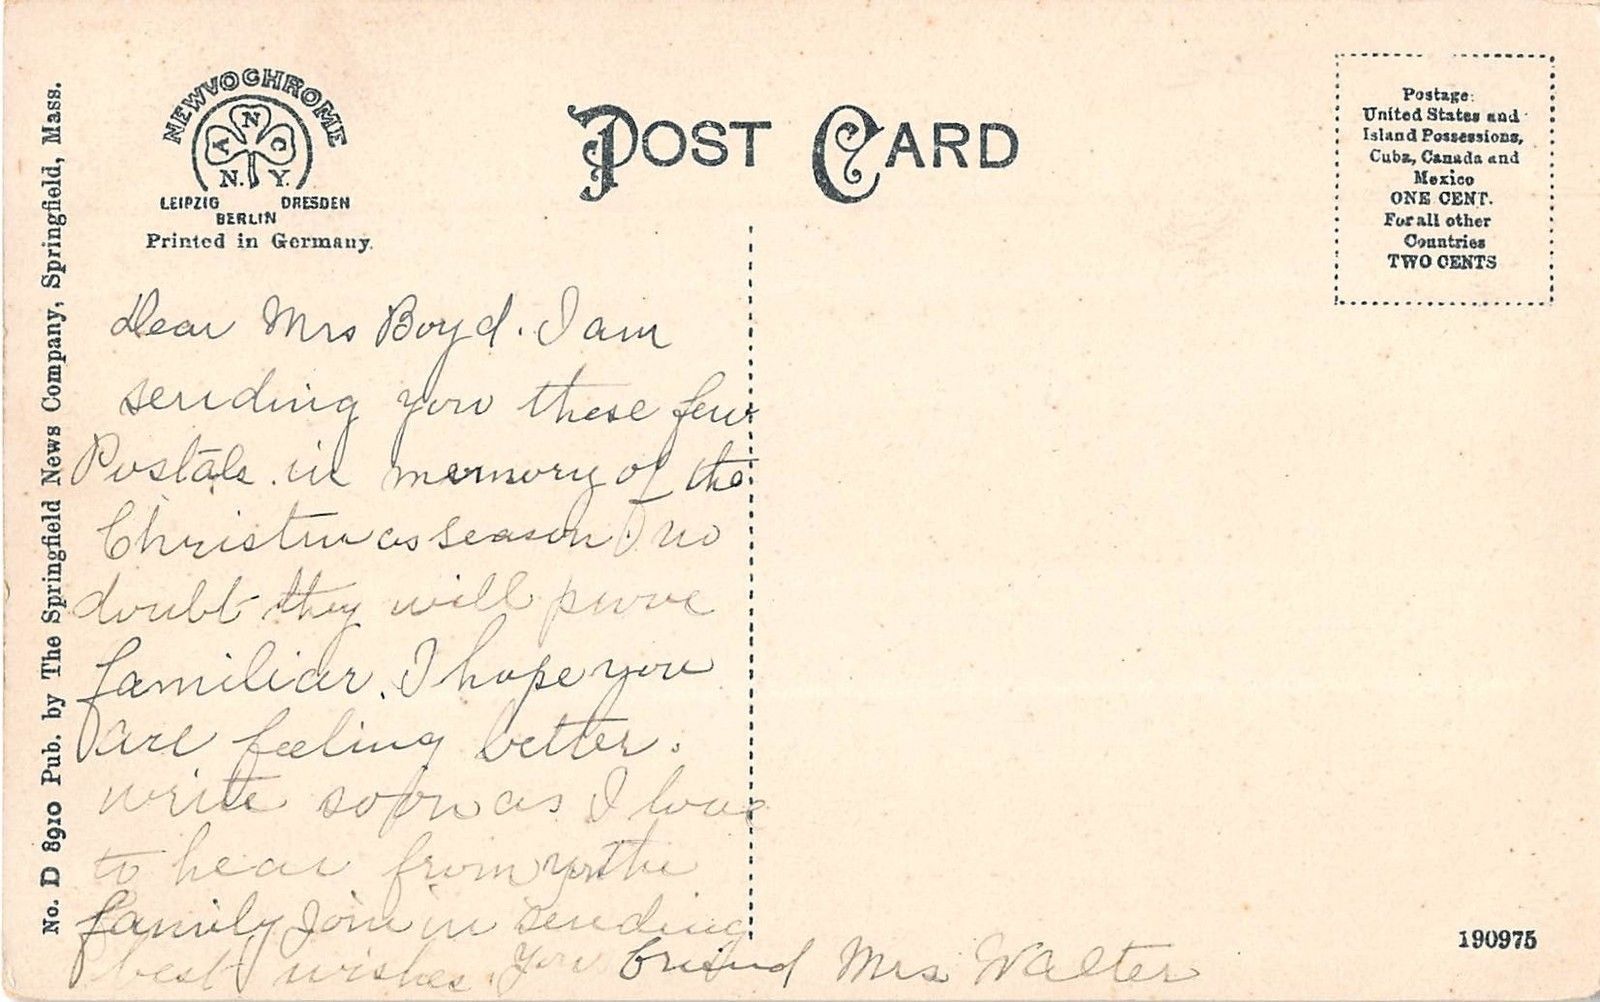 No. D 8910 Pub. by The Springfield News Company, Springfield, Mass.
NEWVOCHROME
A N C
N. Y.
LEIPZIG DRESDEN
BERLIN
Printed in Germany.
POST CARD
Postage:
United States and
Island Possessions,
Cuba, Canada and
Mexico
ONE CENT.
For all other
Countries
TWO CENTS
Dear Mrs Boyd. I am
sending you these few
Postals. in memory of the
Christmas season. no
doubt they will prove
familiar. I hope you
are feeling better.
write soon as I love
to hear from you the
family Join in sending
best wishes. Your friend Mrs Walter
190975